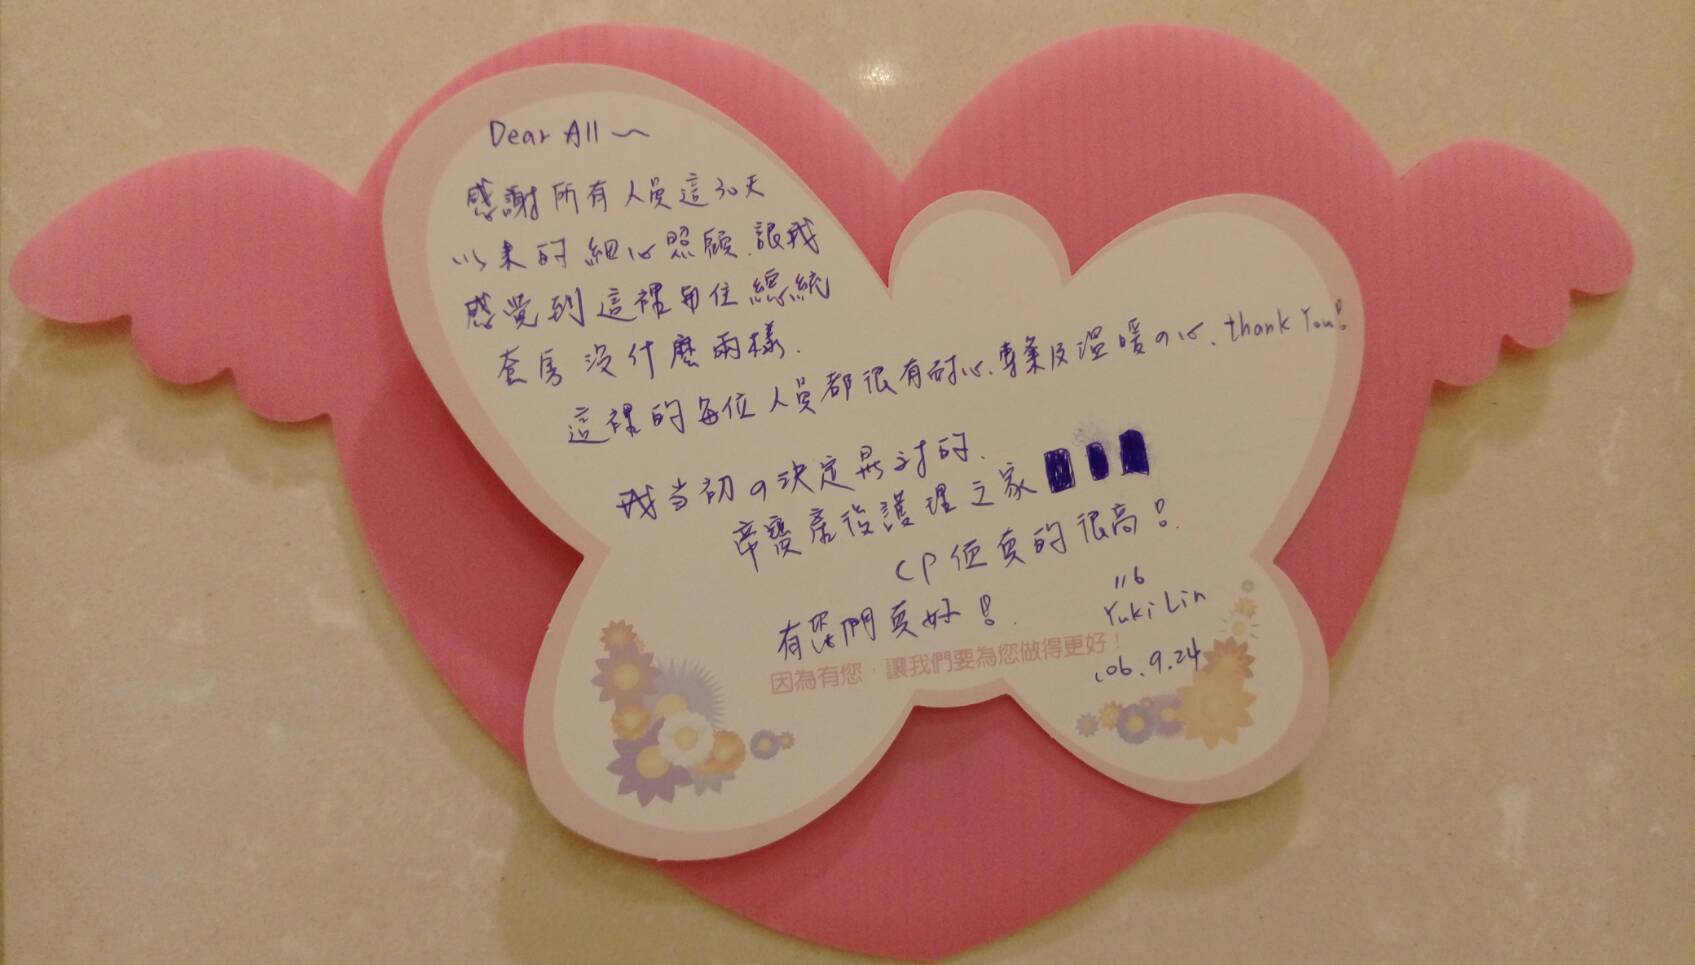 Dear All～
感謝所有人員這30天
以來的細心照顧.讓我
感覺到這裡和住總統
套房沒什麼兩樣.
這裡的每位人員都很有耐心.專業及溫暖の心. thank You!
我当初の決定是对的.
帝寶產後護理之家
CP值真的很高!
有您們真好!
116
Yuki Lin
106.9.24
因為有您，讓我們要為您做得更好！